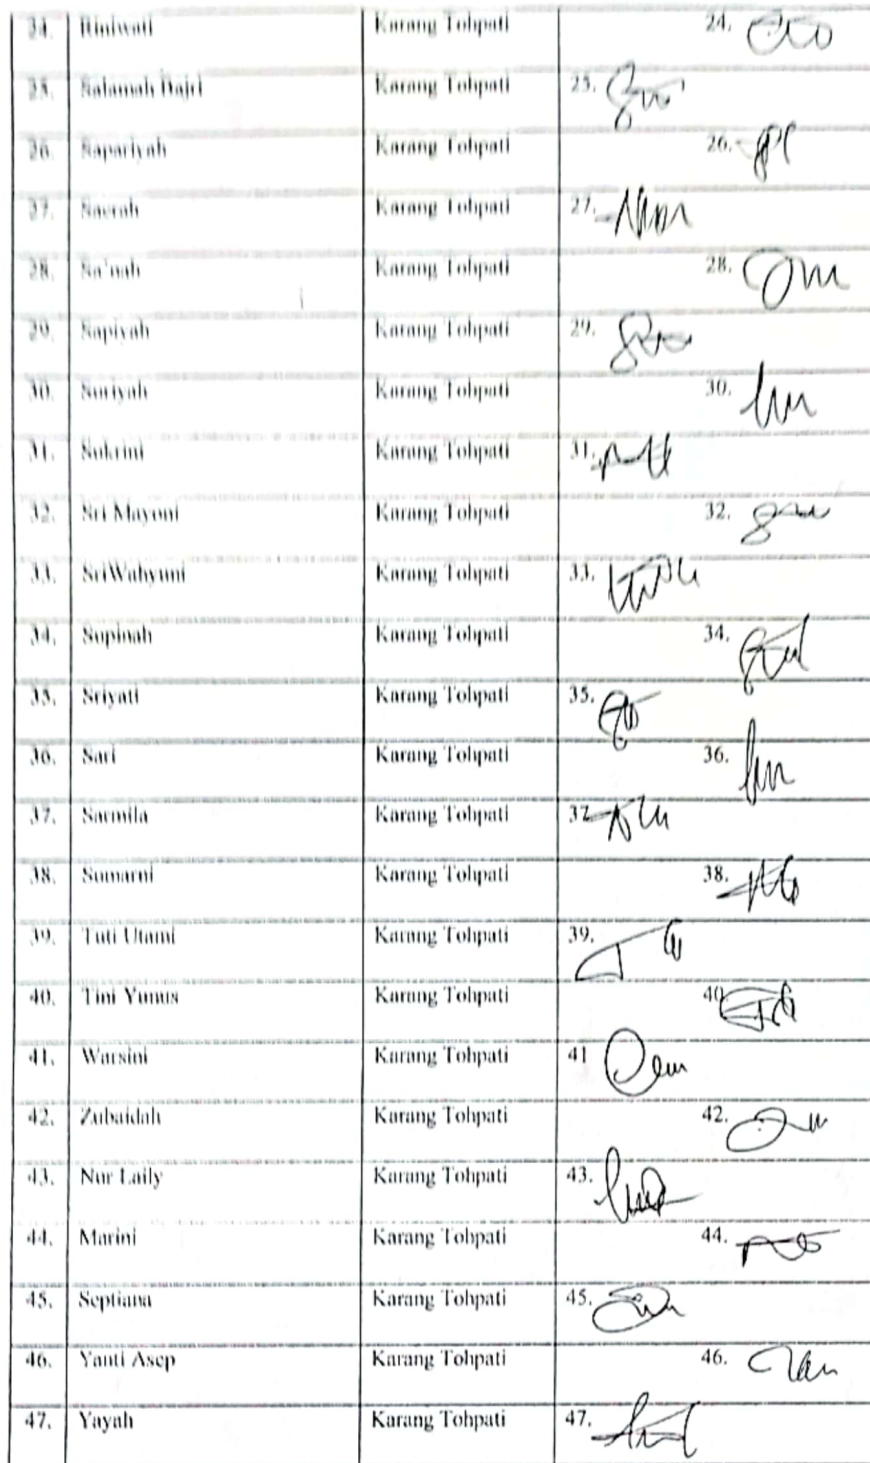 24. Riniwati Karang Tohpati 24.
25. Salamah Bajri Karang Tohpati 25.
26. Sapariyah Karang Tohpati 26.
27. Saerah Karang Tohpati 27.
28. Sa'nah Karang Tohpati 28.
29. Sapiyah Karang Tohpati 29.
30. Soriyah Karang Tohpati 30.
31. Sukrini Karang Tohpati 31.
32. Sri Mayoni Karang Tohpati 32.
33. SriWahyuni Karang Tohpati 33.
34. Sopinah Karang Tohpati 34.
35. Sriyati Karang Tohpati 35.
36. Sari Karang Tohpati 36.
37. Sarmila Karang Tohpati 37
38. Somarni Karang Tohpati 38.
39. Tuti Utami Karang Tohpati 39.
40. Tini Yunus Karang Tohpati 40
41. Warsini Karang Tohpati 41
42. Zubaidah Karang Tohpati 42.
43. Nur Laily Karang Tohpati 43.
44. Marini Karang Tohpati 44.
45. Septiana Karang Tohpati 45.
46. Yanti Asep Karang Tohpati 46.
47. Yayah Karang Tohpati 47.